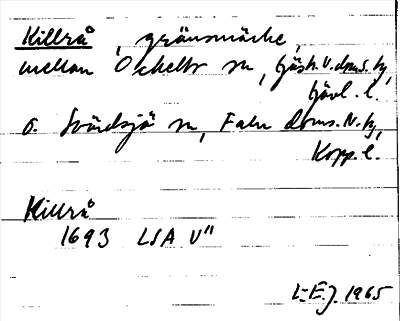 Killrå, gränsmärke,
mellan Ockelbo sn, Gästr. V. doms. tg,
Gävl. l.
o. Svärdsjö sn, Falu doms. N. tg,
Kopp. l.
Killrå
1693 LSA U"
L-E.J. 1965